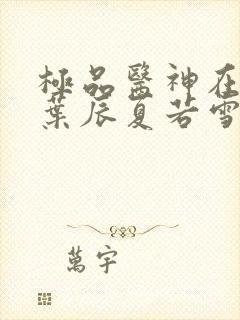 極品醫神在
葉辰夏若雪
萬宇